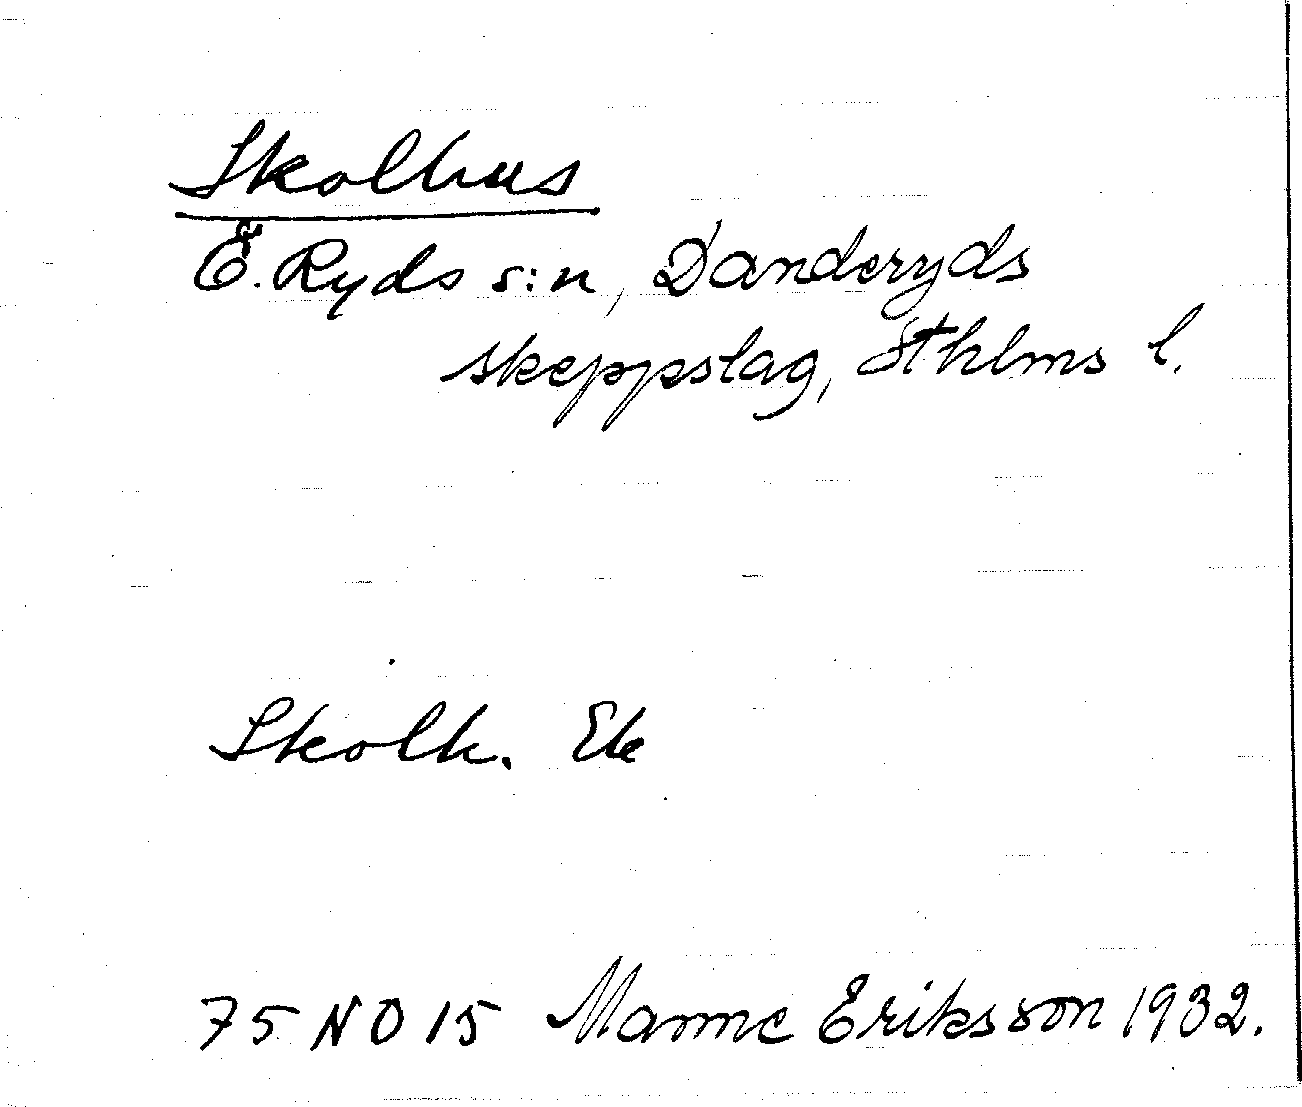 Skolhus
Ö. Ryds s:n, Danderyds
skeppslag, Sthlms l.
Skolh. Ek
75 NO 15 Manne Eriksson 1932.